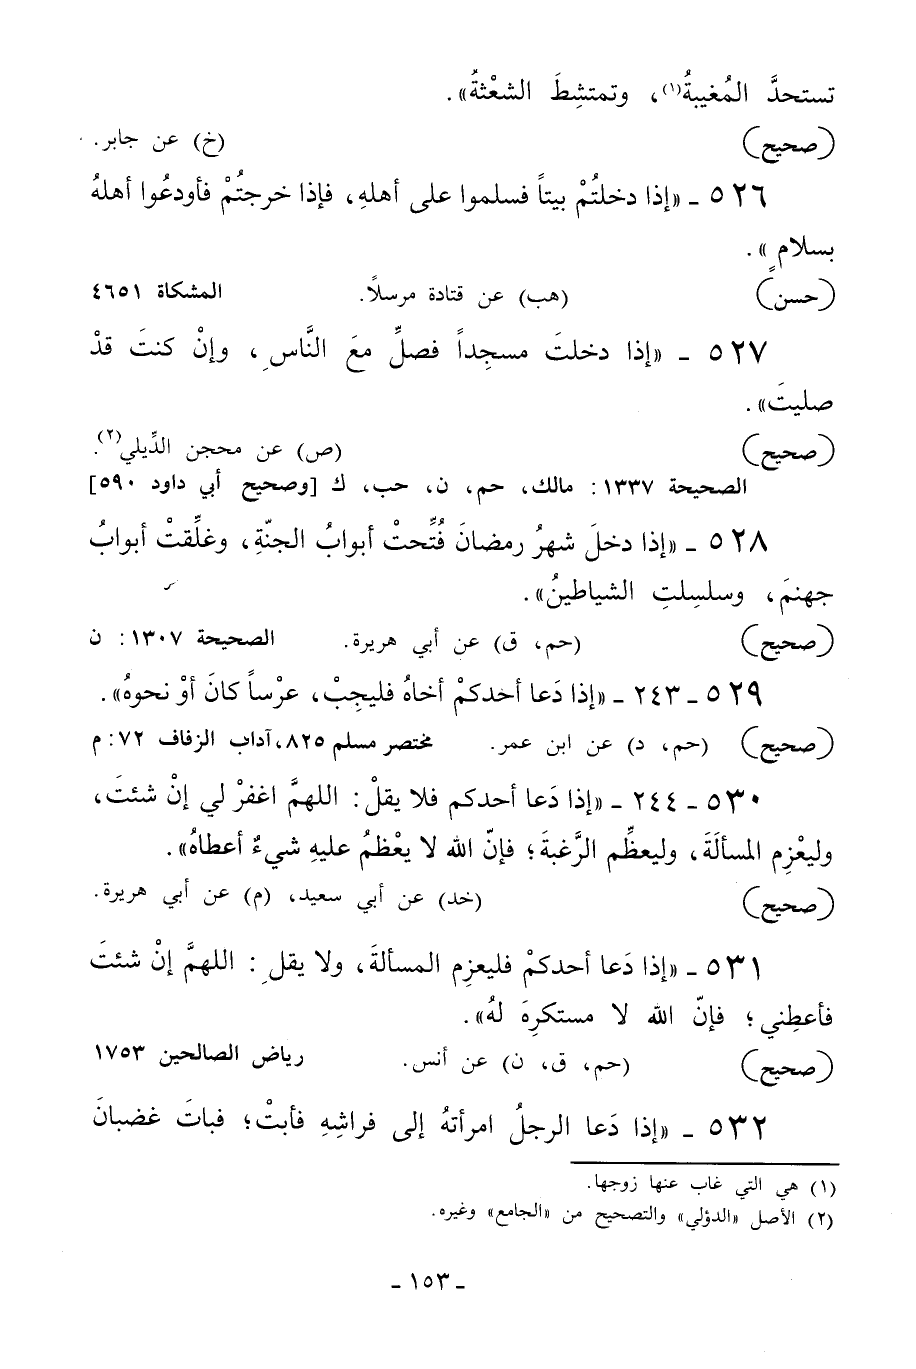 تستحدَّ المُغيبةُ(١)، وتمتشِطَ الشعْثةُ».
(صحيح) (خ) عن جابر.
٥٢٦ ـ «إذا دخلتُمْ بيتاً فسلموا على أهلهِ، فإذا خرجتُمْ فأودعُوا أهلهُ
بسلامٍ».
(حسن) (هب) عن قتادة مرسلًا. المشكاة ٤٦٥١
٥٢٧ ـ «إذا دخلتَ مسجِداً فصلِّ معَ النَّاسِ، وإنْ كنتَ قدْ
صليتَ».
(صحيح) (ص) عن محجن الدِّيلي(٢).
الصحيحة ١٣٣٧: مالك، حم، ن، حب، ك [وصحيح أبي داود ٥٩٠]
٥٢٨ ـ «إذا دخلَ شهرُ رمضانَ فُتِّحتْ أبوابُ الجنّةِ، وغلِّقتْ أبوابُ
جهنمَ، وسلسِلتِ الشياطينُ».
(صحيح) (حم، ق) عن أبي هريرة. الصحيحة ١٣٠٧: ن
٥٢٩ ـ ٢٤٣ ـ «إذا دَعا أحدكمْ أخاهُ فليجِبْ، عرْساً كانَ أوْ نحوهُ».
(صحيح) (حم، د) عن ابن عمر. مختصر مسلم ٨٢٥، آداب الزفاف ٧٢: م
٥٣٠ ـ ٢٤٤ ـ «إذا دَعا أحدكم فلا يقلْ: اللهمَّ اغفرْ لي إنْ شئتَ،
وليعْزِمِ المسألَةَ، وليعظِّمِ الرَّغبةَ؛ فإنّ الله لا يعْظمُ عليهِ شيءٌ أعطاهُ».
(صحيح) (خد) عن أبي سعيد، (م) عن أبي هريرة.
٥٣١ ـ «إذا دَعا أحدكمْ فليعزِمِ المسألةَ، ولا يقلِ: اللهمَّ إنْ شئتَ
فأعطِني؛ فإنّ الله لا مستكرِهَ لهُ».
(صحيح) (حم، ق، ن) عن أنس. رياض الصالحين ١٧٥٣
٥٣٢ ـ «إذا دَعا الرجلُ امرأتهُ إلى فراشِهِ فأبتْ؛ فباتَ غضبانَ
(١) هي التي غاب عنها زوجها.
(٢) الأصل «الدؤلي» والتصحيح من «الجامع» وغيره.
ـ ١٥٣ ـ